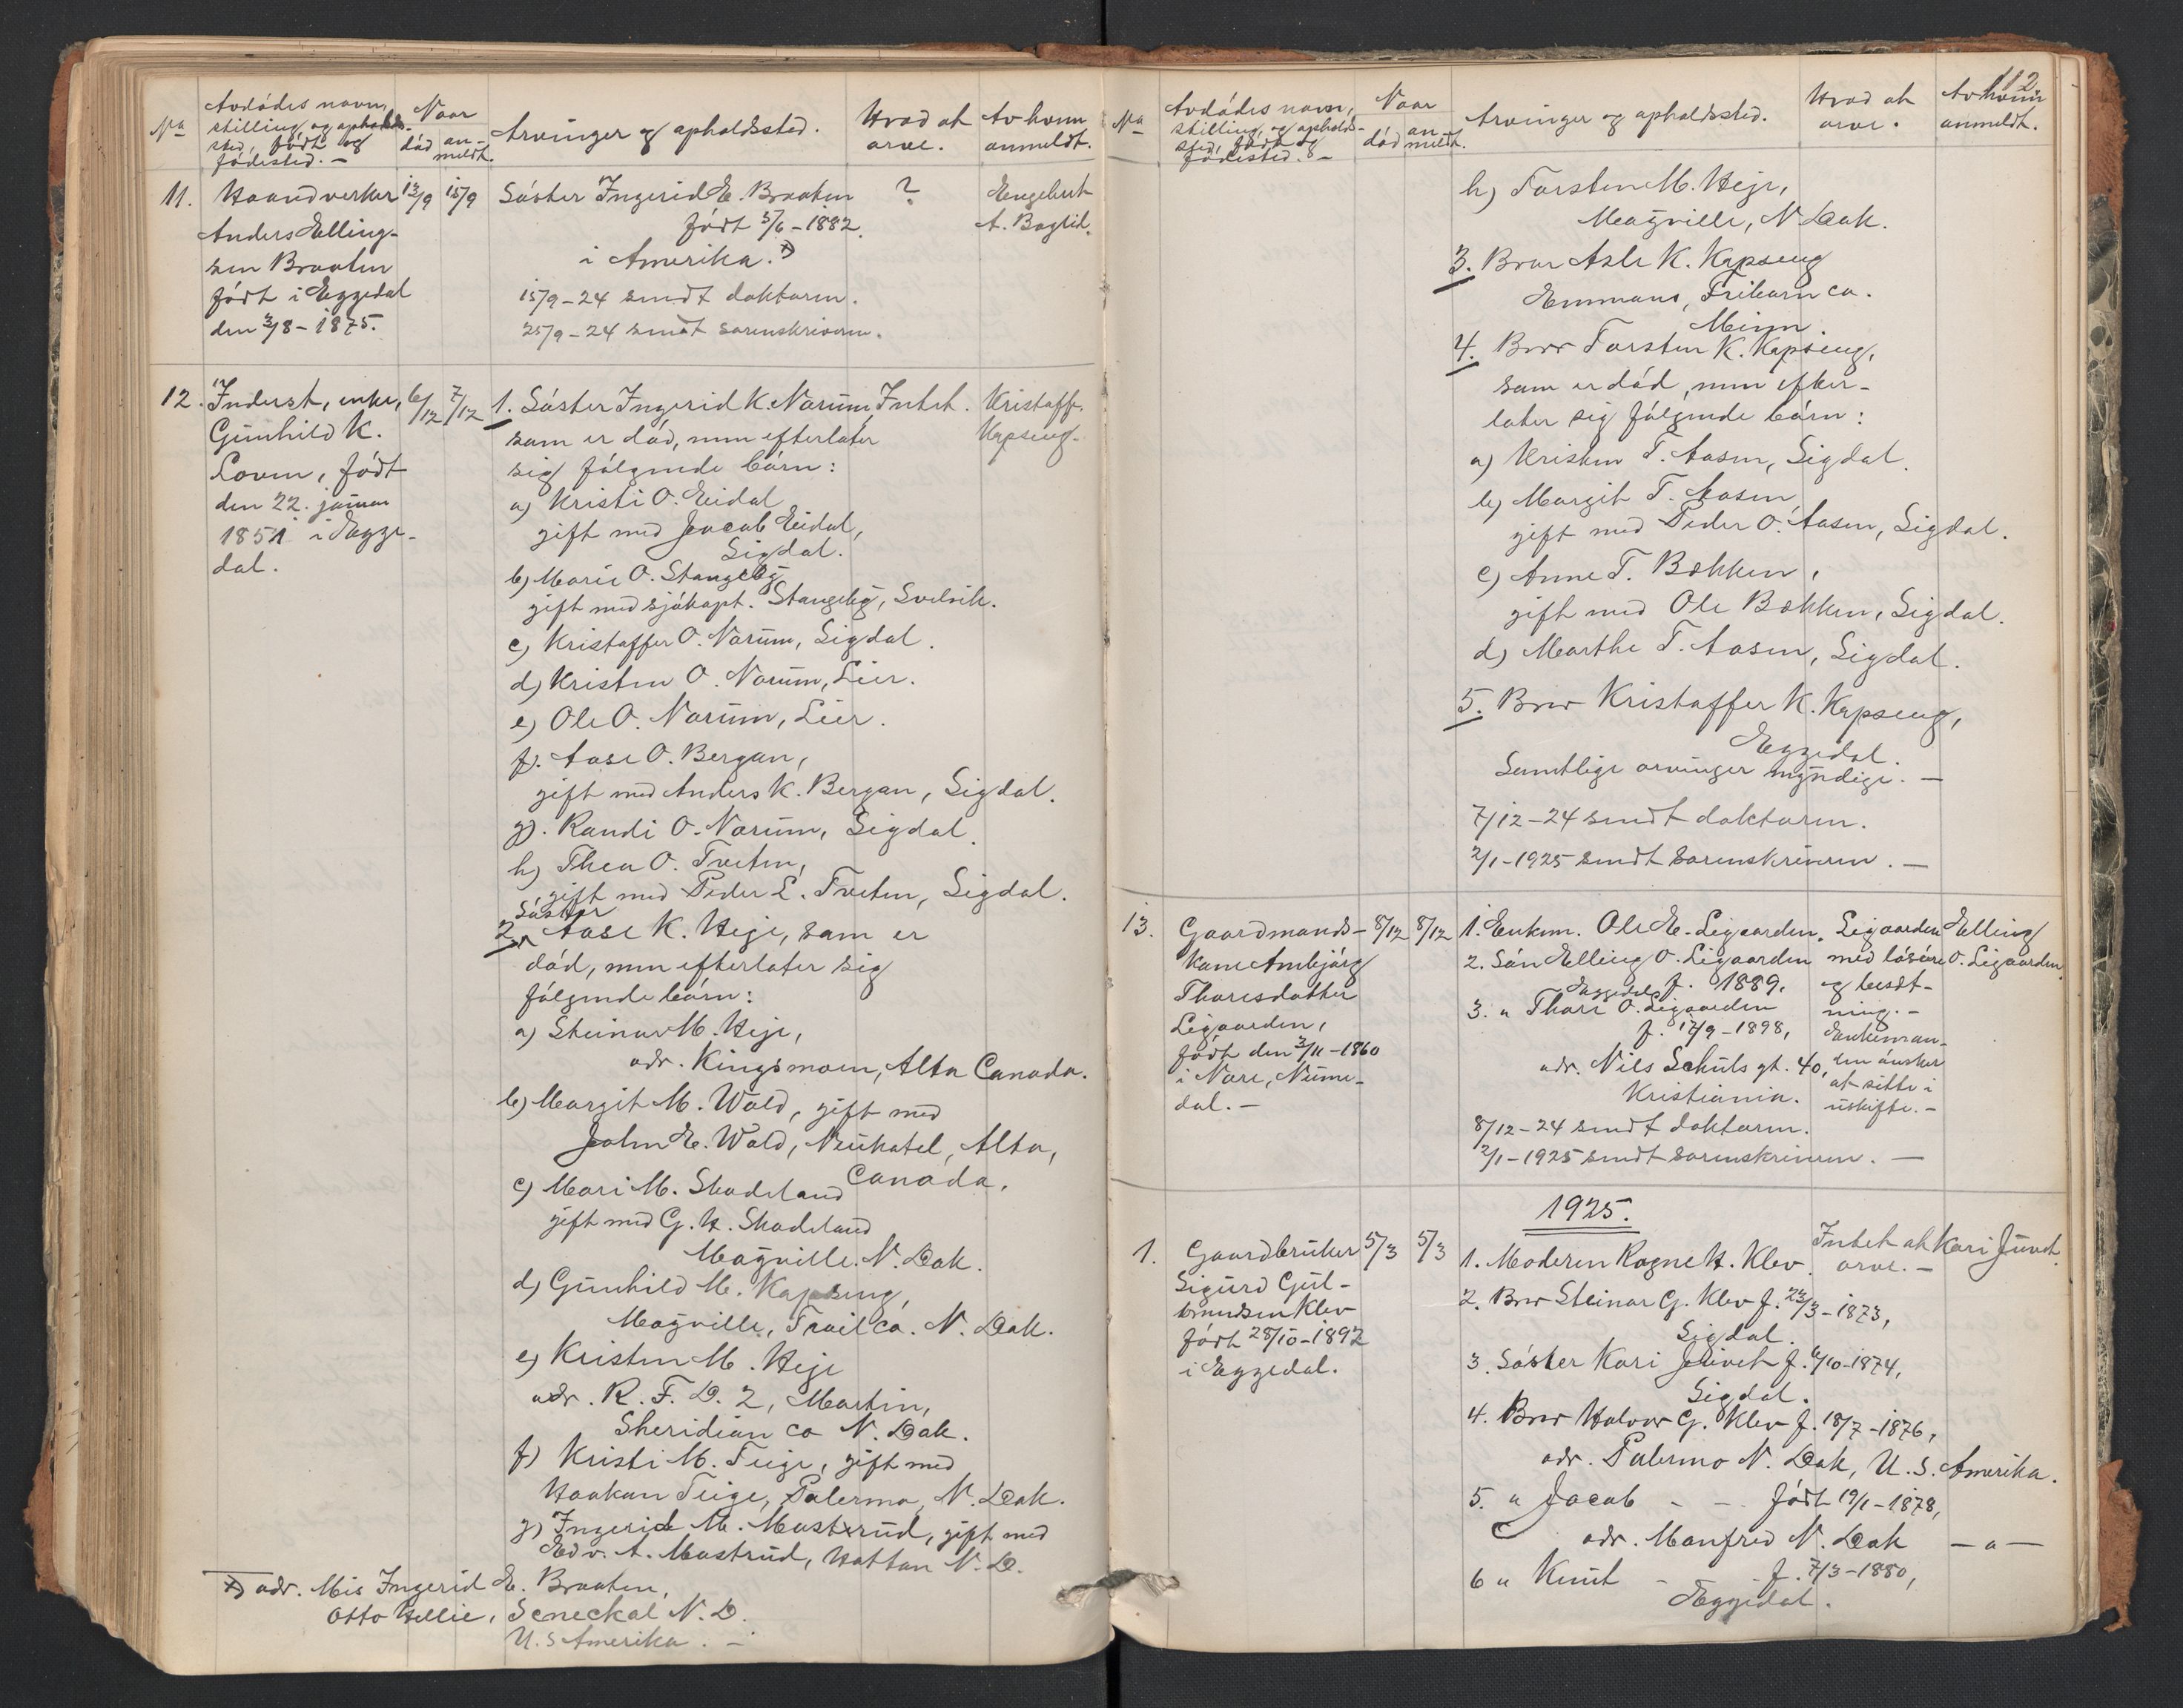 No
Avdødes navn,
stilling, og opholds-
sted, født og
fødested. -
Naar
død
an-
meldt.
Arvinger og opholdssted.
Hvad at
arve.
Av hvem
anmeldt.
11.
Haandverker
Anders Elling-
sen Braaten
født i Eggedal
den 3/8 - 1875.
13/9
15/9
Søster Ingerid E. Braaten
født 5/6 - 1882.
i Amerika. x)
15/9 - 24 sendt doktoren.
25/9 - 24 sendt sorenskriveren.
?
Engebret
A. Bagrid.
12.
Inderst, enke,
Gunhild K.
Loven, født
den 22. januar
1851 i Egge-
dal.
6/12
7/12
1. Søster Ingerid K. Narum
som er død, men efterlater
sig følgende børn:
Intet.
Kristoff.
Kopseng.
a) Kristi O. Eidal
gift med Jacob Eidal,
Sigdal.
b) Marie O. Stangeby
gift med sjøkapt. Stangeby, Svelvik.
c) Kristoffer O. Narum, Sigdal.
d) Kristen O. Narum, Lier.
e) Ole O. Narum, Lier.
f). Aase O. Bergan,
gift med Anders K. Bergan, Sigdal.
g). Randi O. Narum, Sigdal.
h) Thea O. Tveten,
gift med Peder L. Tveten, Sigdal.
Søster
2. Aase K. Heje, som er
død, men efterlater sig
følgende børn:
a) Steinar M. Heje,
adr. Kingsmoen, Alta Canada.
b) Margit M. Wold, gift med
John E. Wold, Neukatel, Alta,
Canada.
c) Mari M. Skadeland
gift med G. H. Skadeland
Mayville. N. Dak.
d) Gunhild M. Kapseng,
Mayville, Trail co. N. Dak.
e) Kristen M. Heje
adr. R. F. D. 2, Martin,
Sheridian co N. Dak.
f) Kristi M. Teige, gift med
Haakon Teige, Palermo, N. Dak.
g) Ingerid M. Mostrud, gift med
Edv. A. Mostrud, Hattan N. D.
x) adr. Mis Ingerid E. Braaten,
Otto Hellie, Seneckal N. D.
U. S Amerika. -
112
No
Avdødes navn,
stilling, og opholds-
sted, født og
fødested. -
Naar
død
an-
meldt.
Arvinger og opholdssted.
Hvad at
arve.
Av hvem
anmeldt.
h) Torsten M. Heje,
Mayville, N Dak.
3. Bror Asle K. Kopseng
Emmons, Friborn co.
Minn.
4. Bror Torsten K. Kopseng,
som er død, men efter-
later sig følgende børn:
a) Kristen T. Aasen, Sigdal.
b) Margit T. Aasen,
gift med Peder O. Aasen, Sigdal.
c) Anne T. Bækken,
gift med Ole Bækken, Sigdal.
d) Marthe T. Aasen, Sigdal.
5. Bror Kristoffer K. Kopseng,
Eggedal.
Samtlige arvinger myndige. -
7/12 - 24 sendt doktoren.
2/1 - 1925 sendt sorenskriveren. -
13.
Gaardmands-
kone Ambjørg
Thoresdatter
Ligaarden,
født den 3/11 - 1860
i Nore, Nume-
dal. -
8/12
8/12
1. Enkem. Ole E. Ligaarden.
2. Søn Elling O. Ligaarden
Eggedal f. 1889.
3. " Thore O. Ligaarden
f. 17/9 - 1898,
adr. Nils Schuls gt. 40,
Kristiania.
8/12 - 24 sendt doktoren.
2/1 - 1925 sendt sorenskriveren. -
Ligaarden
med løsøre
og besæt-
ning. -
Enkeman-
den ønsker
at sitte i
uskifte. -
Elling
O. Ligaarden.
1925.
1.
Gaardbruker
Sigurd Gul-
brandsen Klev
født 28/10 - 1892
i Eggedal.
5/3
5/3
1. Moderen Ragne H. Klev.
Intet at
arve. -
Kari Juvet.
2. Bror Steinar G. Klev f. 23/3 - 1873,
Sigdal.
3. Søster Kari Juvet f. 6/10 - 1874,
Sigdal.
4. Bror Halvor G. Klev f. 18/7 - 1876,
adr. Palermo N. Dak, U. S. Amerika.
5. " Jacob - - født 19/1 - 1878,
adr. Manfred N. Dak - " -
6 " Knut - - f. 7/3 - 1880,
Eggedal.